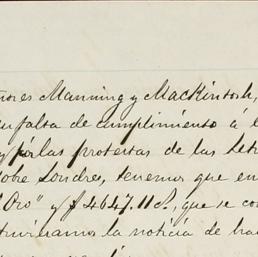 ores Manning y Mackintosh,
falta de cumplimiento á l
y por las protestas de las Letr
obre Londres, tenemos que en
Oro" y $4647.11 
, que se co
la noticia de ha